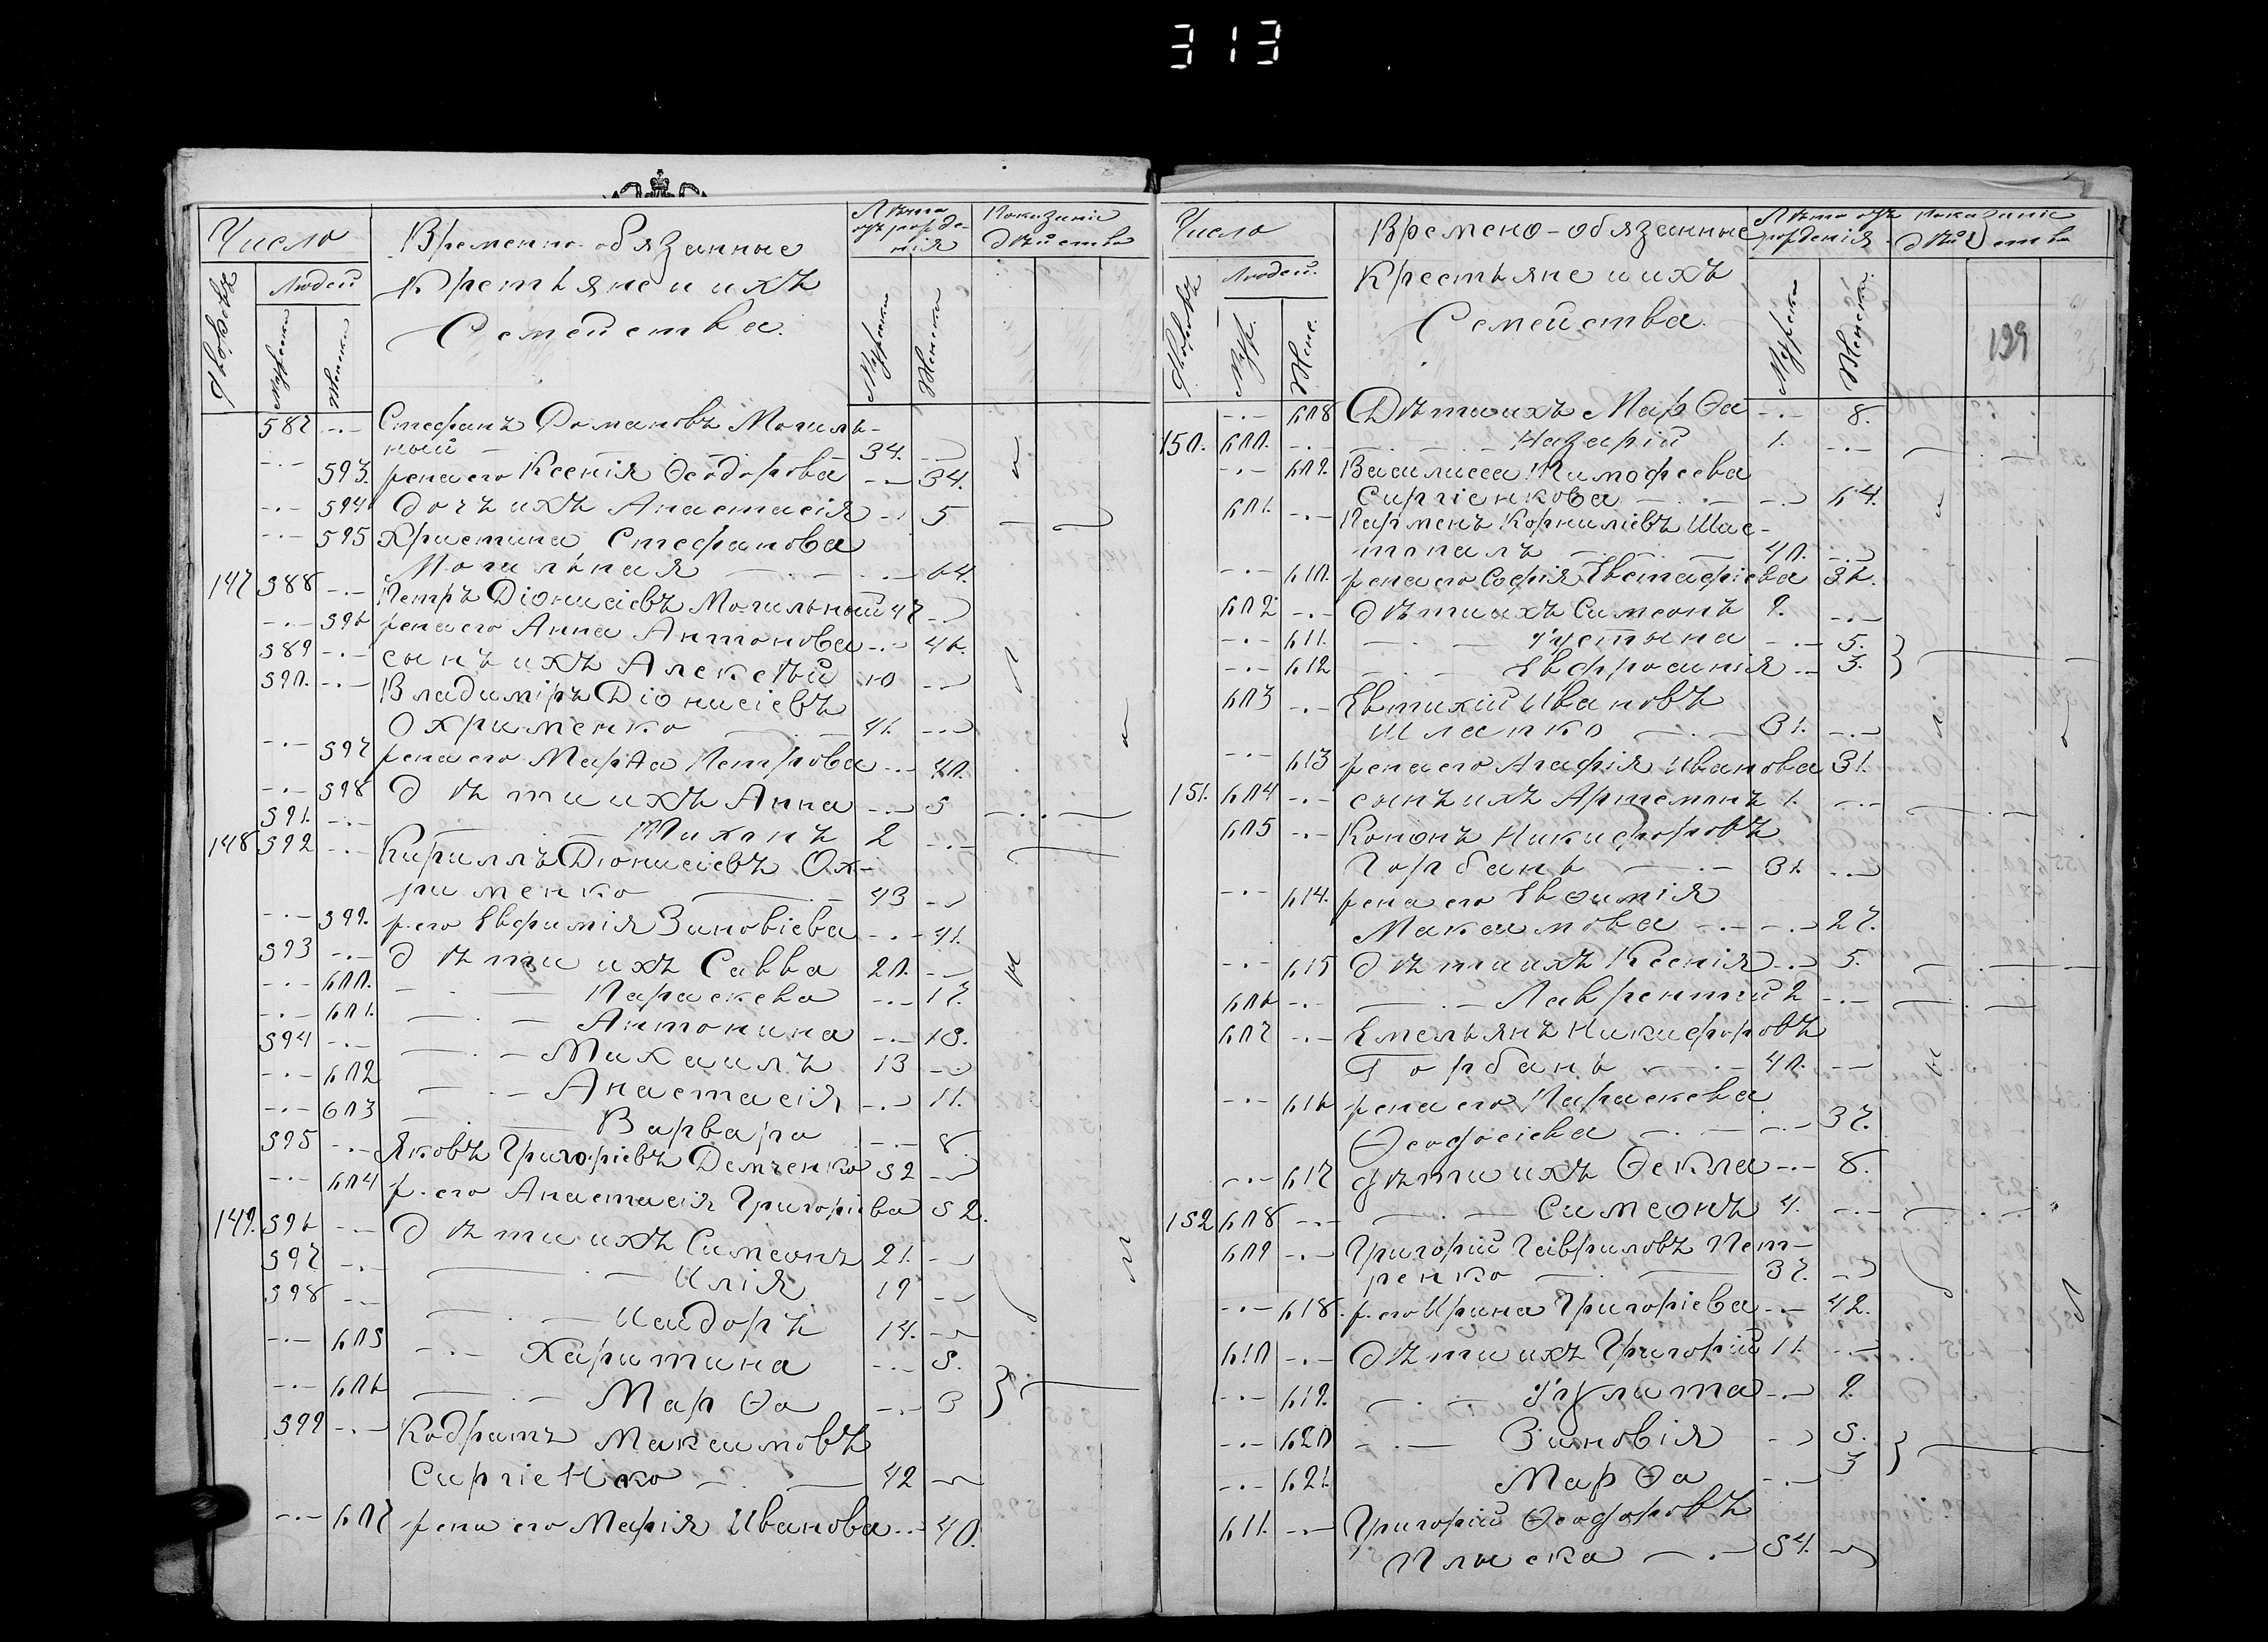 313
Число
Временно-обязанные
Крестьяне и ихъ
Семейства.
Лѣта
отъ рожде-
нія
Показаніе
дѣйства
Дворовъ
Людей
Мужеска
Женска
Мужеска
Женска
587 -.- Стефанъ Романовъ Могиль-
ный 34.
-.- 593. жена его Ксенія Ѳеодорова -.- 34.
-.- 594 дочь ихъ Анастасія -.- 5
-.- 595 Христина Стефанова
Могильная -.- 64.
147 588 -.- Петръ Діонисіевъ Могильный 47
-.- 596 жена его Анна Антонова -.- 46.
589 -.- сынъ ихъ Алексѣй 10
590. -.- Владиміръ Діонисіевъ
Охрименко 41.
-.- 597 жена его Марѳа Петрова -.- 40.
-.- 598 дѣти ихъ Анна -.- 5
591. -.- Тихонъ 2
148 592 -.- Кириллъ Діонисіевъ Ох-
рименко 43
-.- 599. ж. его Евфимія Зиновіева -.- 41.
593 -.- дѣти ихъ Савва 20.
-.- 600. Параскева -.- 17.
-.- 601. Антонина -.- 18.
594 -.- Михаилъ 13
-.- 602 Анастасія -.- 11.
-.- 603 Варвара -.- 8
595 -.- Яковъ Григоріевъ Демченко 52
-.- 604 ж. его Анастасія Григоріева 52.
149. 596 -.- дѣти ихъ Симеонъ 21.
597 -.- Илія 19
598 -.- Исидоръ 14.
-.- 605 Харитина -.- 5.
-.- 606 Марѳа -.- 3
599 -.- Кодратъ Максимовъ
Сиргіенко 42
-.- 607 жена его Марія Иванова -.- 40.
Число
Времено-обязанные
Крестьяне и ихъ
Семейства.
Лѣта отъ
рожденія
показаніе
дѣйства
Дворовъ
Людей.
Муж.
Женс.
Мужеска
Женска.
199
-.- 608 Дѣти ихъ Марѳа -.- 8.
150. 600. -.- Назарій 1.
-.- 609. Василисса Тимофеева
Сиргіенкова -.- 64.
601. -.- Парменъ Корниліевъ Шас-
топалъ 40.
-.- 610. жена его Софія Евстафіева 36.
602 -.- дѣти ихъ Симеонъ 9.
-.- 611. Іустина -.- 5.
-.- 612 Евфросинія -.- 3.
603 -.- Евтихій Ивановъ
Шлапко 31.
-.- 613 жена его Агафія Иванова 31.
151. 604 -.- сынъ ихъ Артемонъ 1.
605 -.- Кононъ Никифоровъ
Горбань 31.
-.- 614. жена его Евѳимія
Максимова -.- 27.
-.- 615 дѣти ихъ Ксенія -.- 5.
606 -.- Лаврентій 2
607 -.- Емельянъ Никифоровъ
Горбань 40.
-.- 616 жена его Параскева
Ѳеодосіева -.- 37.
-.- 617 дѣти ихъ Ѳекла -.- 8.
152 608 -.- Симеонъ 4.
609 -.- Григорій Гавриловъ Пет-
ренко 37.
-.- 618. ж. его Ирина Григоріева -.- 42.
610 -.- дѣти ихъ Григорій 11.
-.- 619. Іулита -.- 9.
-.- 620 Зиновія -.- 5.
-.- 621. Марѳа -.- 3
611. -.- Григорій Ѳеодоровъ
Плыска 54.